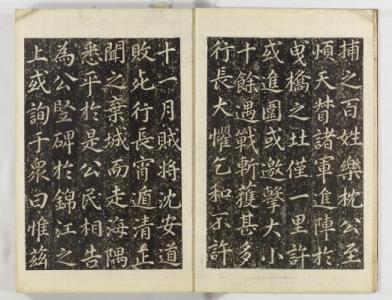 捕之百姓樂枕公至
順天督諸軍進陣於
曳橋之北僅一里許
或進圍或邀擊大小
十餘遇戰斬獲甚多
行長大懼乞和不許
十一月賊將沈安道
敗死行長宵遁清正
聞之棄城而走海隅
悉平於是公民相告
為公竪碑於錦江之
上或詢于衆曰惟玆